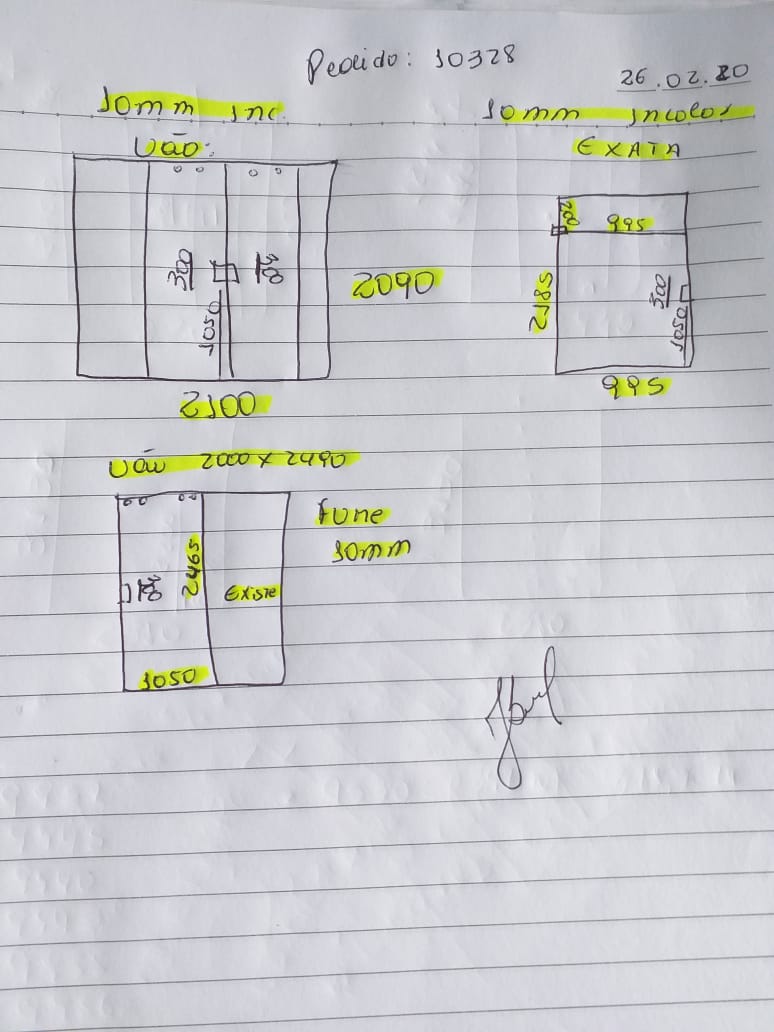 Pedido: 10328
26.02.20
10mm inc.
Vão:
300
300
1050
2090
2100
10mm incolor
EXATA
200
995
2185
300
1050
995
Vão 2000 x 2490
300
2465
Existe
1050
fume
10mm